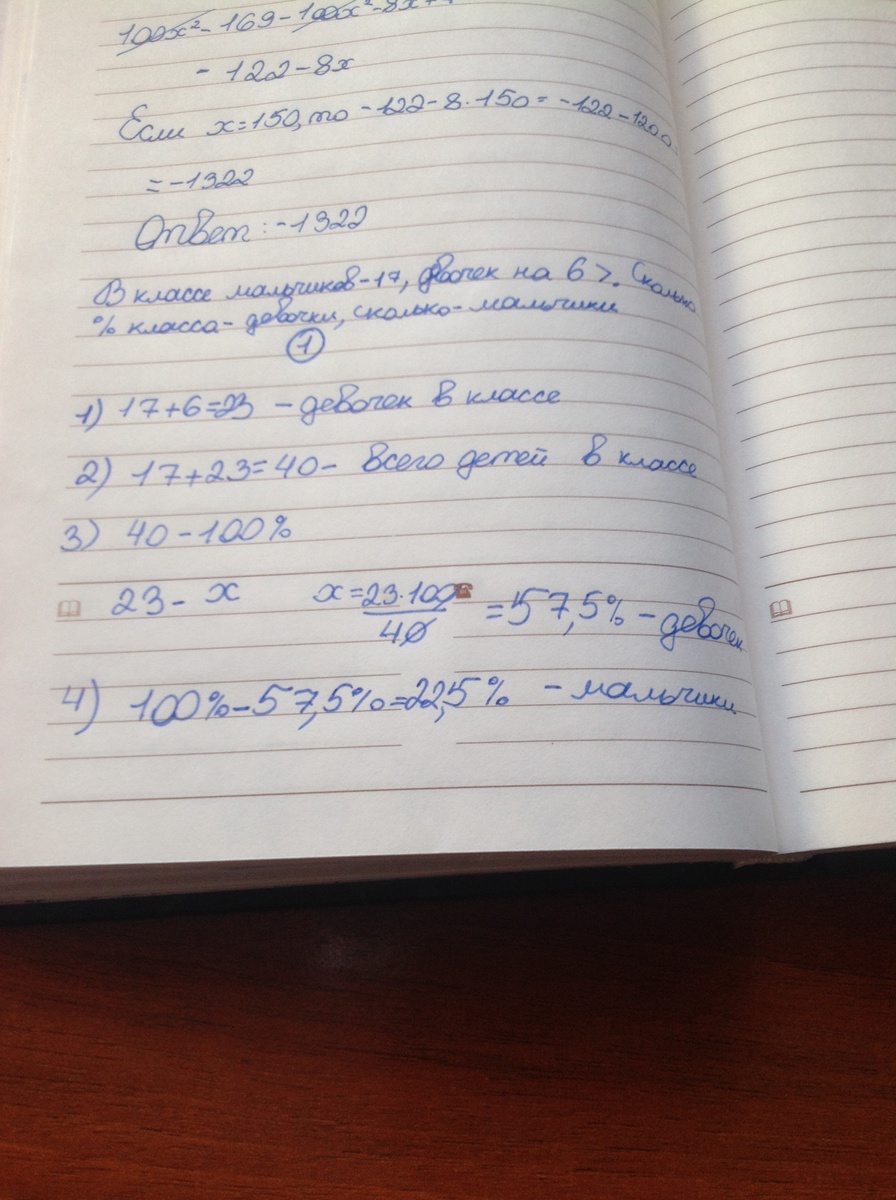 100x² - 169 - 100x² - 8x +
- 122 - 8x
Если x=150, то -122 - 8·150 = -122 - 1200 =
= -1322
Ответ: -1322
В классе мальчиков - 17, девочек на 6 >. Сколько
% класса - девочки, сколько - мальчики
1
1) 17+6=23 - девочек в классе
2) 17+23=40 - всего детей в классе
3) 40 - 100%
23 - x x = 23·100/40 = 57,5% - девочек
4) 100% - 57,5% = 22,5% - мальчики